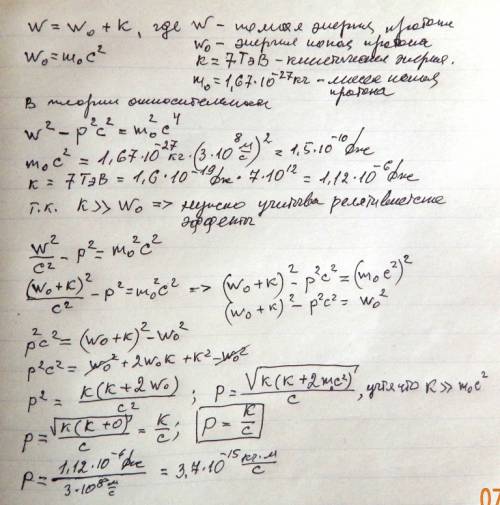 W = W₀ + K, где W – полная энергия протона
W₀ = m₀c²
W₀ – энергия покоя протона
K = 7 ТэВ – кинетическая энергия.
m₀ = 1,67·10⁻²⁷ кг – масса покоя протона
В теории относительности
W² – p²c² = m₀²c⁴
m₀c² = 1,67·10⁻²⁷ кг·(3·10⁸ м/с)² = 1,5·10⁻¹⁰ Дж
K = 7 ТэВ = 1,6·10⁻¹⁹ Дж·7·10¹² = 1,12·10⁻⁶ Дж
т.к. K >> W₀ => нужно учитыва релятивистские
эффекты
W²/c² – p² = m₀²c²
(W₀+K)²/c² – p² = m₀²c² => (W₀+K)² – p²c² = (m₀c²)²
(W₀+K)² – p²c² = W₀²
p²c² = (W₀+K)² – W₀²
p²c² = W₀² + 2W₀K + K² – W₀²
p² = K(K+2W₀)/c² ; p = √(K(K+2m₀c²))/c , учтя что K >> m₀c²
p = √(K(K+0))/c = K/c ; p = K/c
p = 1,12·10⁻⁶ Дж / 3·10⁸ м/с = 3,7·10⁻¹⁵ кг·м/с
07